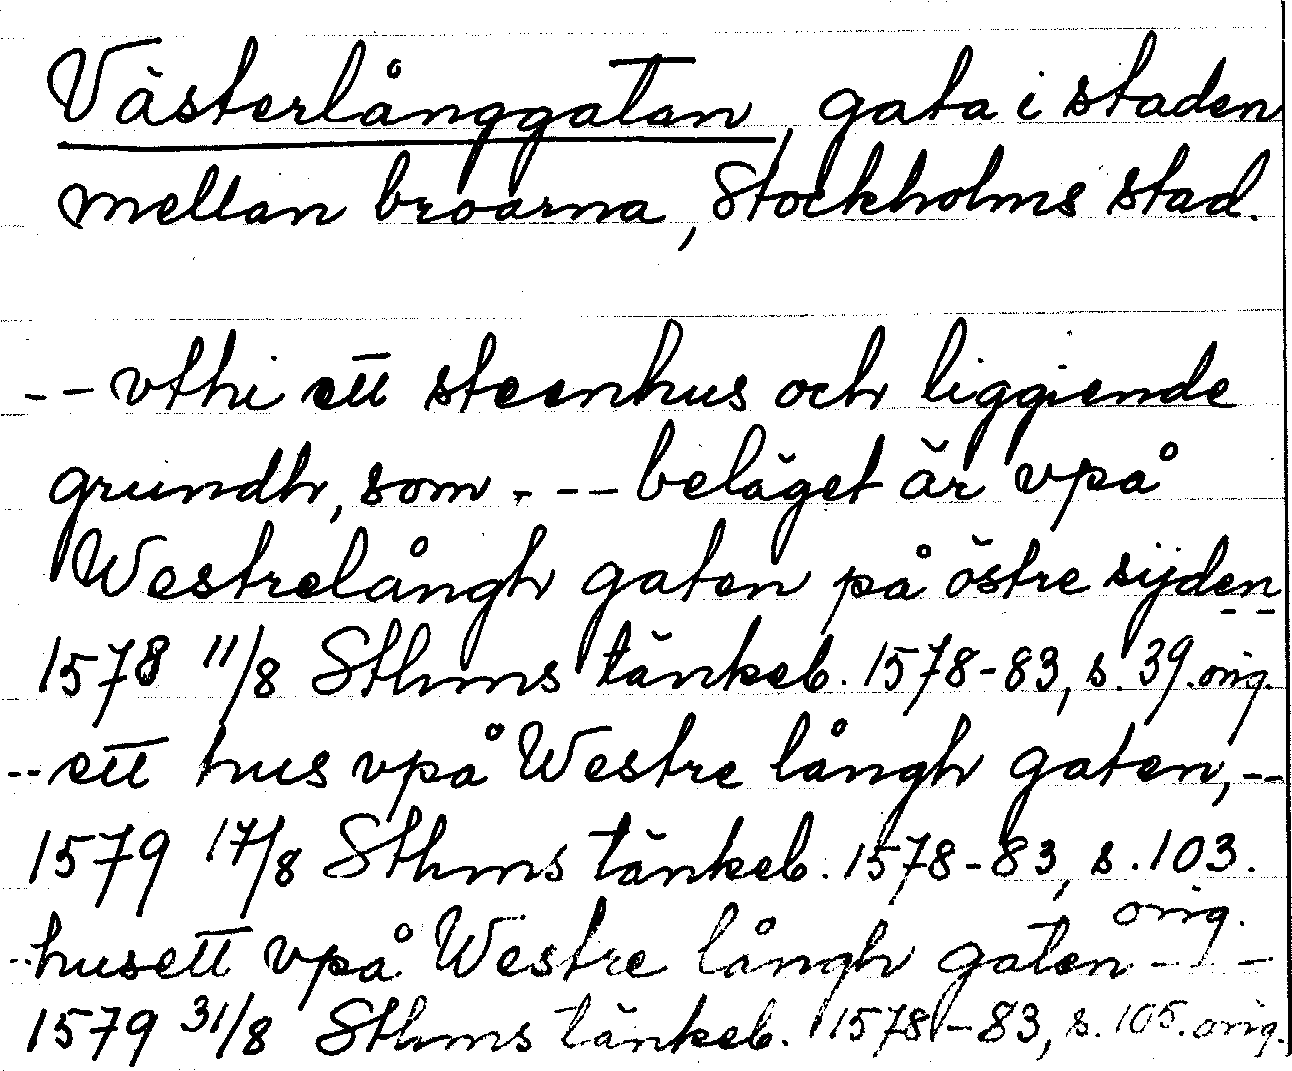 Västerlånggatan, gata i staden
mellan broarna, Stockholms stad.
-- vthi ett steenhus och liggiende
grundh, som --- beläget är vpå
Westrelångh gaten på östre sijden
1578 11/8 Sthms tänkeb. 1578-83, s. 39. orig.
-- ett hus vpå Westre långh gaten, --
1579 17/8 Sthms tänkeb. 1578-83, s. 103.
orig.
-- husett vpå Westre långh gaten ---
1579 31/8 Sthms tänkeb. 1578-83, s. 105. orig.